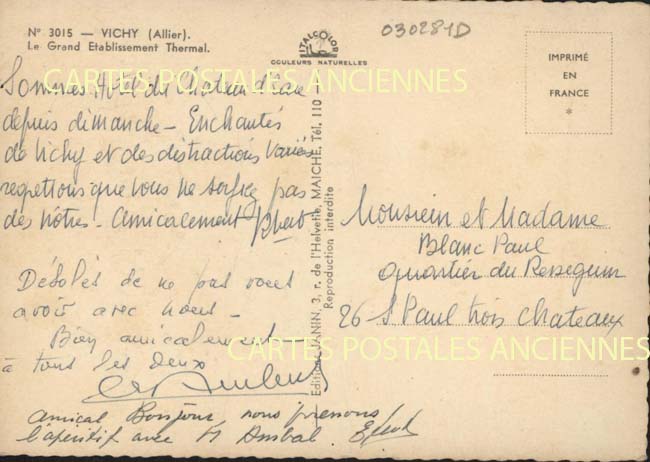 N° 3015 — VICHY (Allier).
Le Grand Etablissement Thermal.
ITALCOLOR
COULEURS NATURELLES
030281D
IMPRIMÉ
EN
FRANCE
*
CARTES POSTALES ANCIENNES
Sommes Hôtel du
depuis dimanche - Enchantés
de Vichy et des distractions variées
regrettons que vous ne soyez pas
des nôtres - amicalement
Désolés de ne pas vous
avoir avec nous -
Bien amicalement
à tous les deux
amical Bonjour, nous prenons
l'apéritif avec
Edition JANIN, 3, r. de l'Helvétie, MAICHE, Tél. 110
Reproduction interdite
Monsieur et Madame
Blanc Paul
quartier du Resseguin
26 St Paul trois Chateaux
CARTES POSTALES ANCIENNES